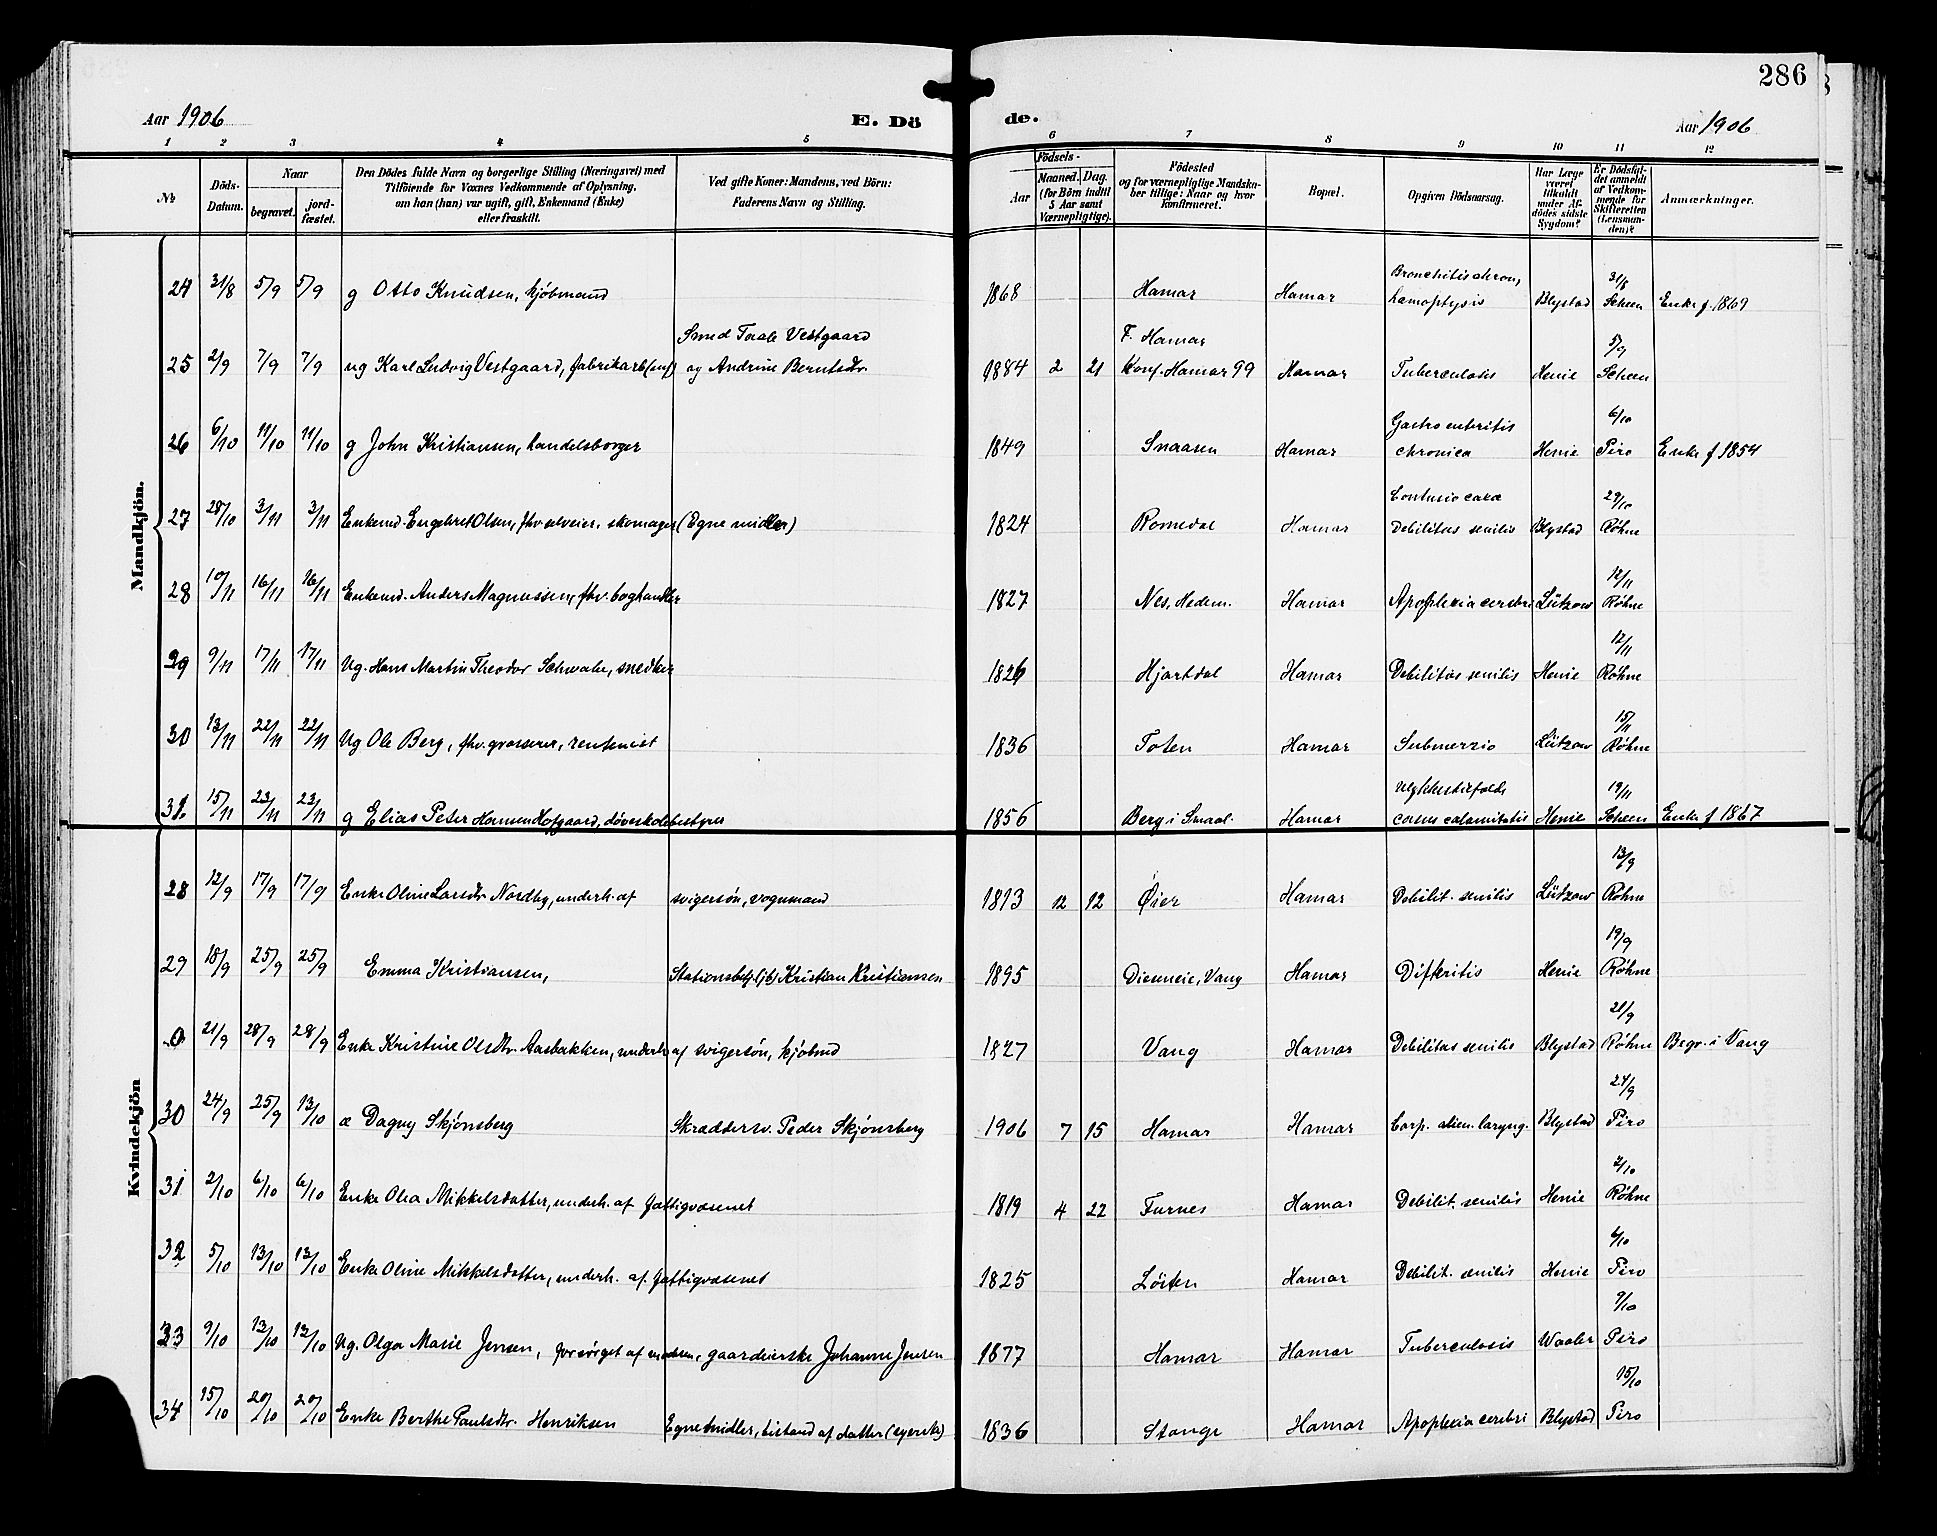 286
Aar 1906
E. Dö de.
Aar 1906
1 2 3 4 5 6 7 8 9 10 11 12
No
Döds-Datum.
Naar
begravet.
jord-fæstet.
Den Dödes fulde Navn og borgerlige Stilling (Næringsvei) med
Tilföiende for Voxnes Vedkommende af Oplysning,
om han (hun) var ugift, gift, Enkemand (Enke)
eller fraskilt.
Ved gifte Koner: Mandens, ved Börn:
Faderens Navn og Stilling.
Födsels-
Aar
Maaned. Dag.
(for Börn indtil
5 Aar samt
Værnepligtige).
Födested
og for værnepligtige Mandska-
ber tillige: Naar og hvor
konfirmeret.
Bopæl.
Opgiven Dödsaarsag.
Har Læge
været
tilkaldt
under Af-
dödes sidste
Sygdom?
Er Dödsfal-
det anmeldt
af Vedkom-
mende for
Skifteretten
(Lensman-
den)?
Anmærkninger.
Mandkjön.
24 31/8 5/9 5/9 g Otto Knudsen, kjöbmand 1868 Hamar Hamar Bronchitis chron, hæmoptysis Blystad 31/8 Scheen Enke f. 1869
25 2/9 7/9 7/9 ug Karl Ludvig Vestgaard, fabrikarb Smed Taale Vestgaard og Andrine Berntsdtr. 1884 2 21 F. Hamar Konf. Hamar 99 Hamar Tuberculosis Henie 5/9 Scheen
26 6/10 11/10 11/10 g John Kristiansen, handelsborger 1849 Snaasen Hamar Gastroenteritis chronica Henie 6/10 Piro Enke f 1854
27 28/10 3/11 3/11 Enkemd. Engebret Olsen, fhv selveier, skomager (Egne midler) 1824 Romedal Hamar Contusio coxæ Debilitas senilis Blystad 29/10 Röhne
28 10/11 16/11 16/11 Enkemd. Anders Magnussen, fhv. boghandler 1827 Nes, Hedem. Hamar Apoplexia cerebri Lützow 12/11 Röhne
29 9/11 17/11 17/11 Ug. Hans Martin Theodor Schwabe, snedker 1826 Hjartdal Hamar Debilitas senilis Henie 12/11 Röhne
30 13/11 22/11 22/11 Ug Ole Berg, fhv. grosserer, rentenist 1836 Toten Hamar Submersio Lützow 15/11 Röhne
31 15/11 23/11 23/11 g Elias Peder Hansen Hofgaard, døveskolebestyrer 1856 Berg i Smaal. Hamar Ulykkestilfælde casus calamitatis Henie 19/11 Scheen Enke f 1867
Kvindekjön
28 12/9 17/9 17/9 Enke Oline Larsdtr Nordby, underh. af svigersön, vognmand 1813 12 12 Öier Hamar Debilit. senilis Lützow 13/9 Röhne
29 18/9 25/9 25/9 Emma Kristiansen, Stationsbetj. (jb) Kristian Kristiansen 1895 Diseneie, Vang Hamar Difteritis Henie 19/9 Röhne
0 21/9 28/9 28/9 Enke Kristine Olsdtr. Aasbakken, underh af svigersön, kjöbmd 1827 Vang Hamar Debilitas senilis Blystad 21/9 Röhne Begr. i Vang
30 24/9 25/9 13/10 æ Dagny Skjönsberg Skræddersv. Peder Skjönsberg 1906 7 15 Hamar Hamar Corp. alien. laryng. Blystad 24/9 Piro
31 2/10 6/10 6/10 Enke Olea Mikkelsdatter, underh. af fattigvæsenet 1819 4 22 Furnes Hamar Debilit. senilis Henie 2/10 Röhne
32 5/10 13/10 13/10 Enke Oline Mikkelsdatter, underh. af fattigvæsenet 1825 Löiten Hamar Debilit. senilis Henie 6/10 Piro
33 9/10 13/10 13/10 Ug. Olga Marie Jensen, forsörget af moderen, gaardeierske Johanne Jensen 1877 Hamar Hamar Tuberculosis Waaler 9/10 Piro
34 15/10 20/10 20/10 Enke Berthe Paulsdtr. Henriksen Egne midler, bistand af datter 1836 Stange Hamar Apoplexia cerebri Blystad 15/10 Piro